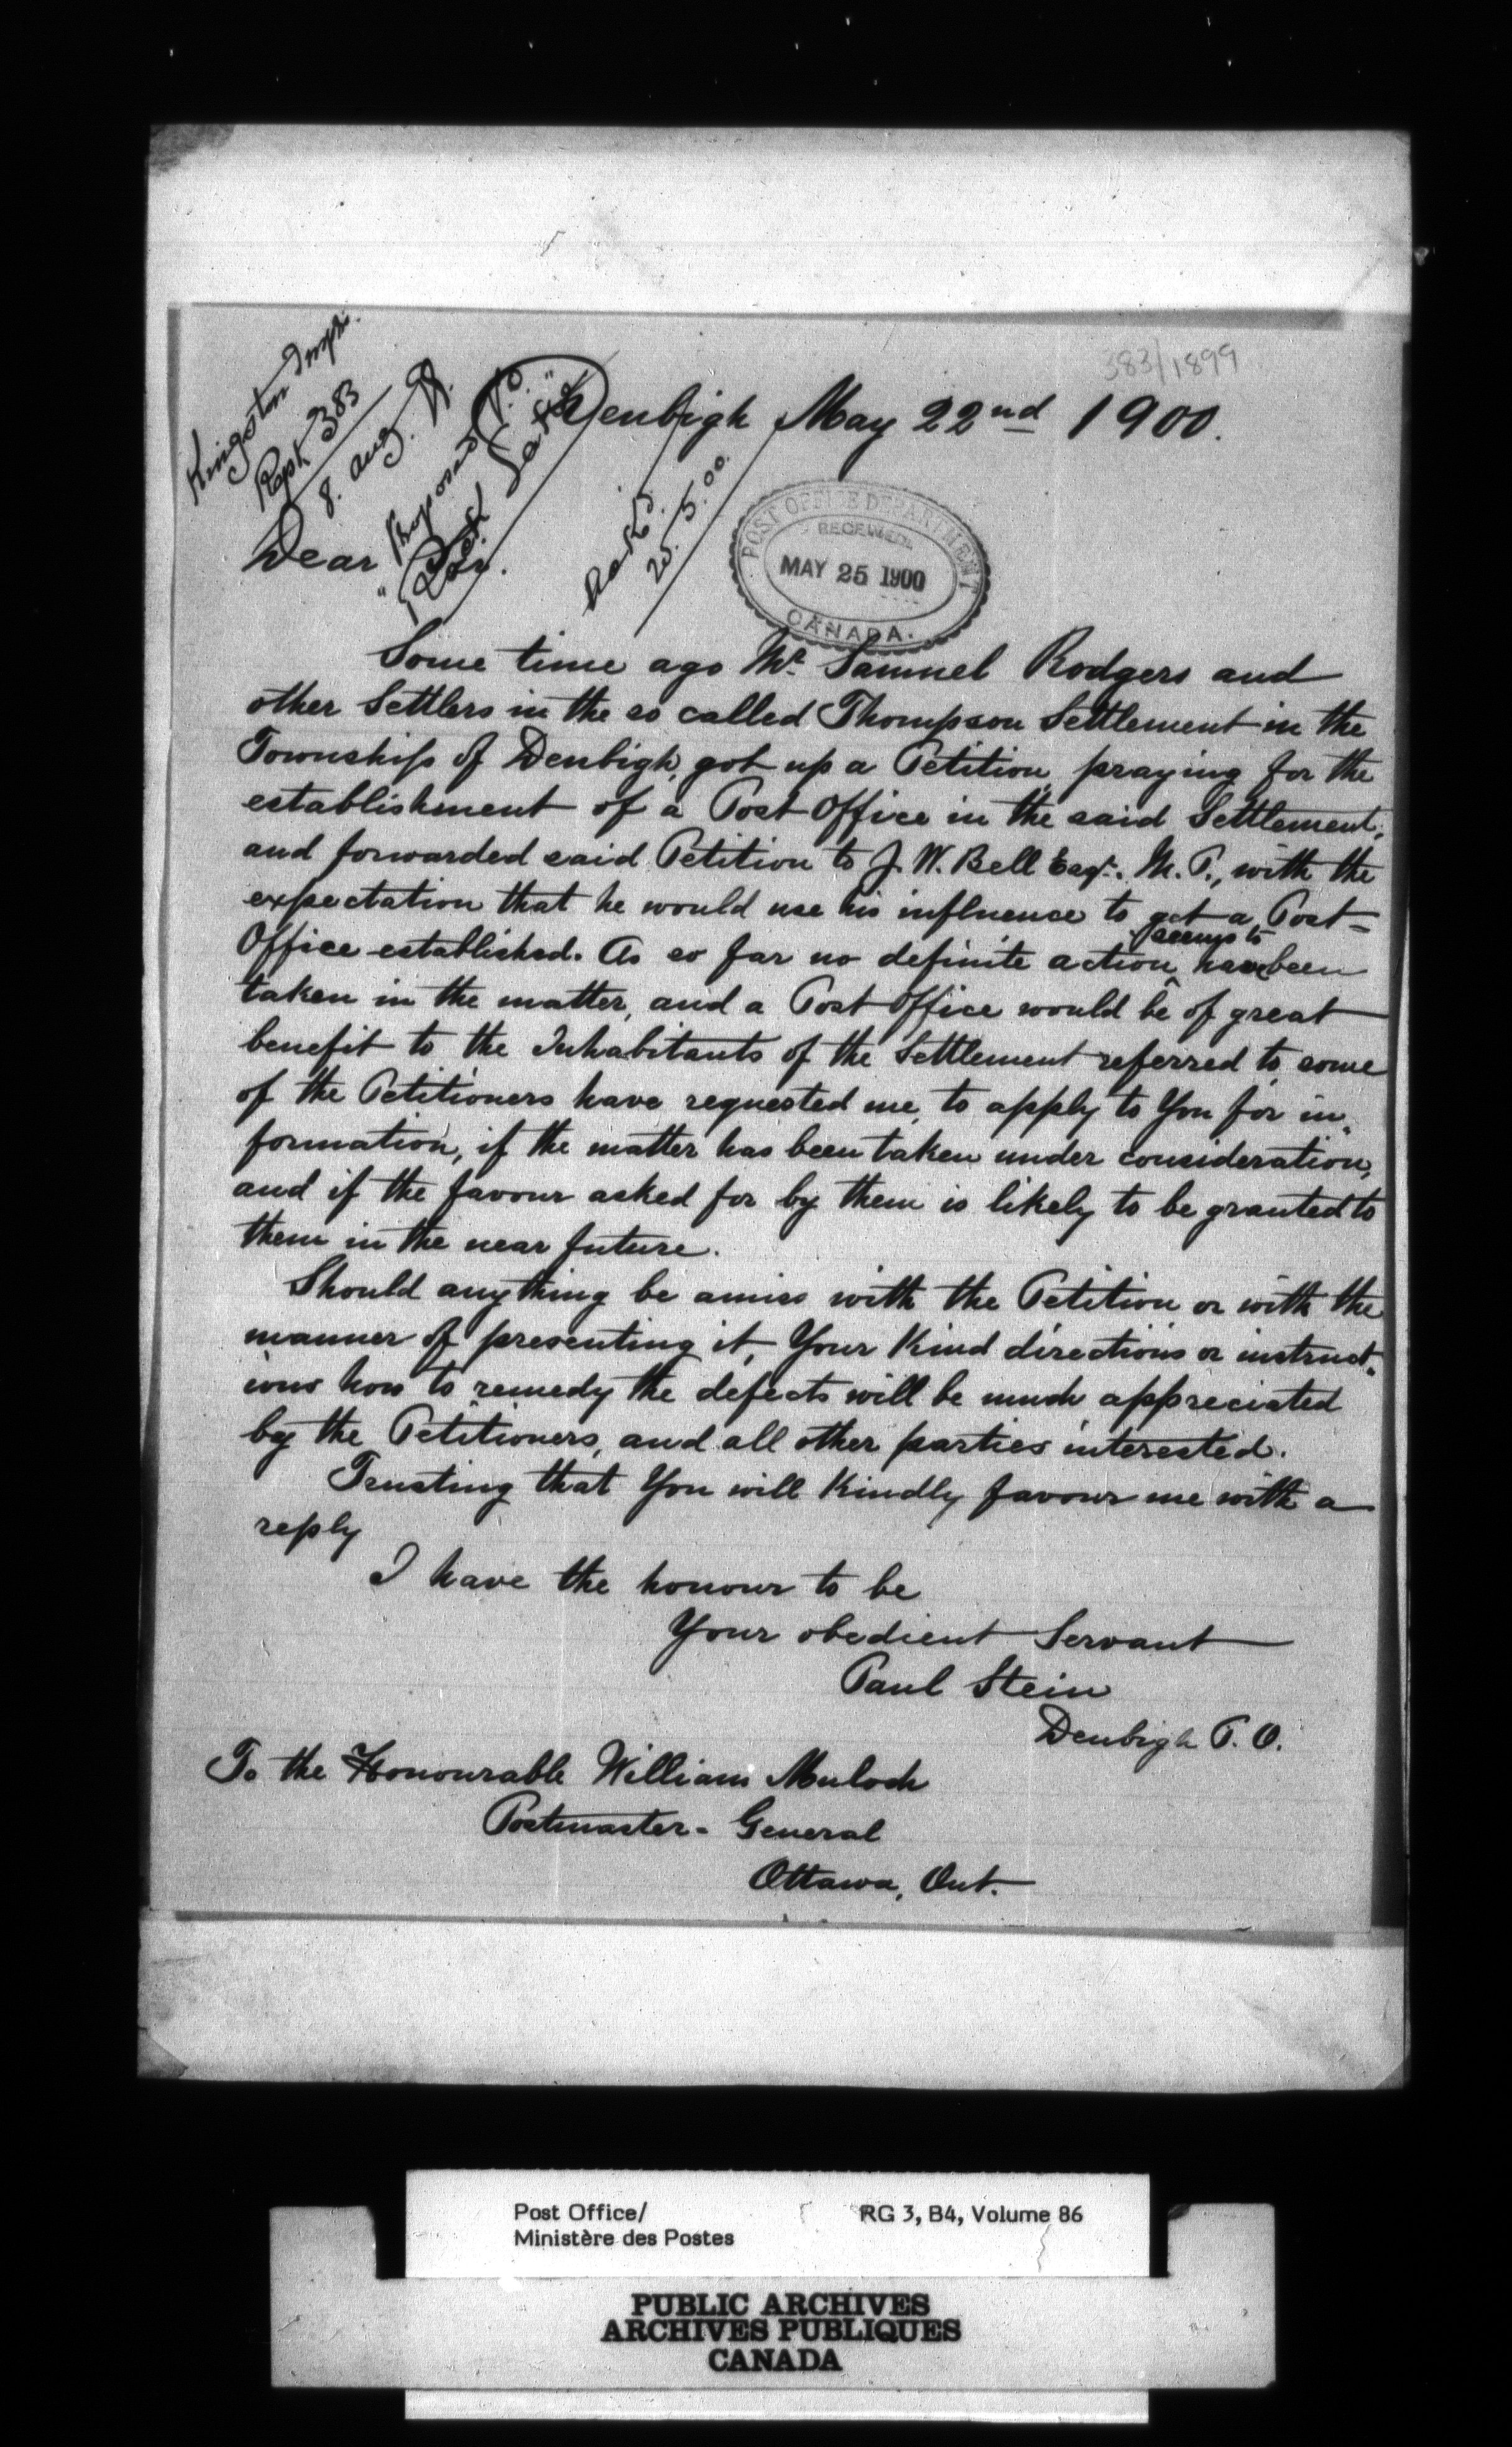 383/1899
Kingston Insp.
Rept 383
8. Aug. 99.
"Proposed P.O."
Denbigh May 22nd 1900.
25.5.00.
POST OFFICE DEPARTMENT
RECEIVED
MAY 25 1900
CANADA.
Dear Sir.
Some time ago Mr. Samuel Rodgers and
other Settlers in the so called Thompson Settlement in the
Township of Denbigh, got up a Petition, praying for the
establishment of a Post Office in the said Settlement,
and forwarded said Petition to J. W. Bell Esqr. M. P., with the
expectation that he would use his influence to get a Post-
Office established. As so far no definite action seems to have been
taken in the matter, and a Post Office would be of great
benefit to the Inhabitants of the Settlement referred to, some
of the Petitioners have requested me, to apply to You for in-
formation, if the matter has been taken under consideration,
and if the favour asked for by them is likely to be granted to
them in the near future.
Should anything be amiss with the Petition or with the
manner of presenting it, Your Kind directions or instruct-
ions how to remedy the defects will be much appreciated
by the Petitioners, and all other parties interested.
Trusting that You will Kindly favour me with a
reply
I have the honour to be
Your obedient Servant
Paul Stein
Denbigh P. O.
To the Honourable William Mulock
Postmaster-General
Ottawa, Ont.
Post Office/
Ministère des Postes
RG 3, B4, Volume 86
PUBLIC ARCHIVES
ARCHIVES PUBLIQUES
CANADA